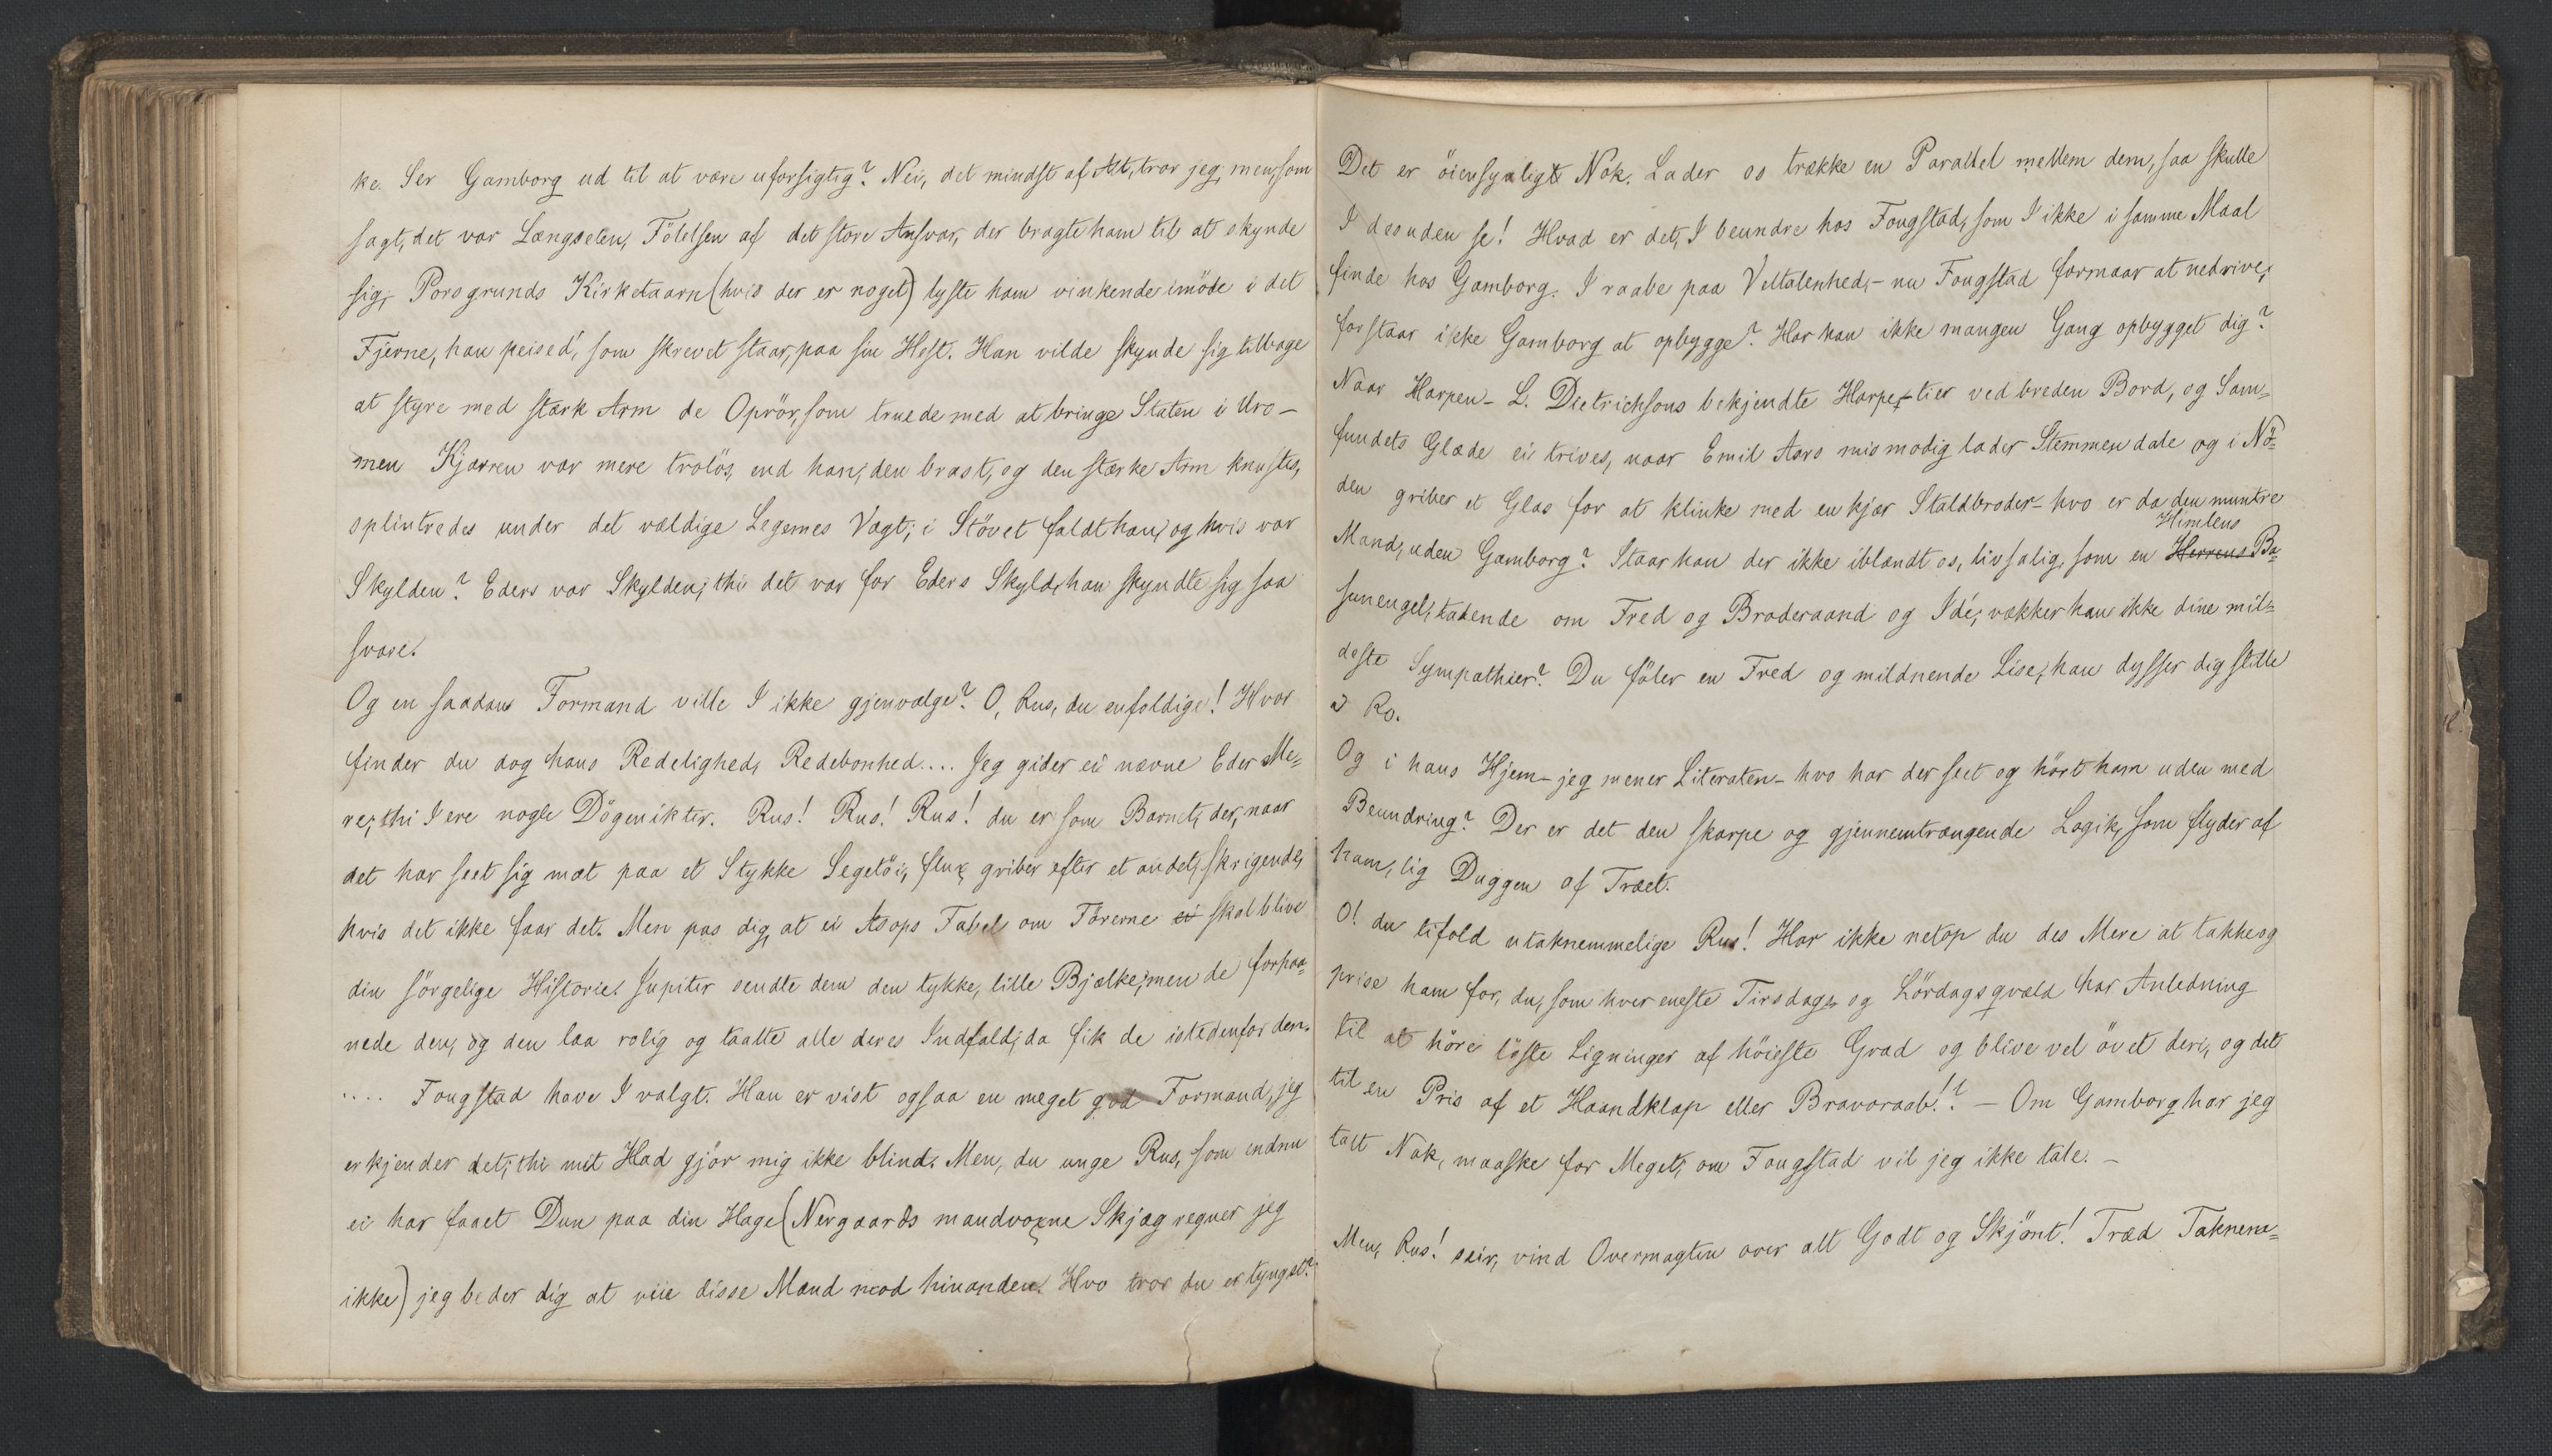 ke. Ser Gamborg ud til at være uforsigtig? Nei, det mindst af Alt, tror jeg; men, som
sagt, det var Længselen, Følelsen af det store Ansvar, der bragte ham til at skynde
sig; Porsgrunds Kirketaarn (hvis der er noget) lyste ham vinkende imöde i det
Fjerne, han peised', som skrevet staar, paa sin Hest. Han vilde skynde sig tilbage
at styre med stærk Arm de Oprör, som truede med at bringe Staten i Uro –
men Kjærren var mere trolös, end han; den brast, og den stærke Arm knustes,
splintredes under det vældige Legemes Vægt; i Stövet faldt han, og hvis var
Skylden? Eders var Skylden; thi det var for Eders Skyld, han skyndte sig saa
svare.
Og en saadan Formand ville I ikke gjenvælge? O, Rus, du enfoldige! Hvor
finder du dog hans Redelighed, Redebonhed.... Jeg gider ei nævne Eder Me=
re; thi I ere nogle Dögenikter. Rus! Rus! Rus! du er som Barnet, der, naar
det har seet sig mæt paa et Stykke Legetöi, flux griber efter et andet, skrigende,
hvis det ikke faar det. Men pas dig, at ei Æsops Fabel om Frøerne ei skal blive
din sörgelige Historie. Jupiter sendte dem den tykke, lille Bjælke; men de forhaa=
nede den, og den laa rolig og taalte alle deres Indfald; da fik de istedenfor den
.... Fougstad have I valgt. Han er vist ogsaa en meget god Formand, jeg
erkjender det; thi mit Had gjör mig ikke blind. Men, du unge Rus, som endnu
ei har faaet Dun paa din Hage (Nergaards mandvoxne Skjæg regner jeg
ikke) jeg beder dig at veie disse Mænd mod hinanden. Hvo tror du er tyngst?
Det er öiensynligt Nok. Lader os trække en Parallel mellem dem, saa skulle
I desuden se! Hvad er det, I beundre hos Fougstad, som I ikke i samme Maal
finde hos Gamborg. I raabe paa Veltalenhed, – nu Fougstad formaar at nedrive;
forstaar ikke Gamborg at opbygge? Har han ikke mangen Gang opbygget dig?
Naar Harpen – L. Dietrichsons bekjendte Harpe, – tier ved breden Bord, og Sam=
fundets Glæde ei trives, naar Emil Aars mismodig lader Stemmen dale og i Nö=
den griber et Glas for at klinke med en kjær Staldbroder – hvo er da den muntre
Himlens
Mand, uden Gamborg? Staar han der ikke iblandt os, livsalig, som en Herrens Ba=
sunengel, talende om Fred og Broderaand og Idé; vækker han ikke dine mil=
deste Sympathier? Du föler en Fred og mildnende Lise, han dysser dig stille
i Ro.
Og i hans Hjem – jeg mener Literaten – hvo har der seet og hört ham uden med
Beundring? Der er det den skarpe og gjennemtrængende Logik, som flyder af
ham, lig Duggen af Træet.
O! du tifold utaknemmelige Rus! Har ikke netop du des Mere at takke og
prise ham for, du, som hver eneste Tirsdags og Lördagsqvæld har Anledning
til at höre löste Ligninger af höieste Grad og blive vel övet deri, og det
til en Pris af et Haandklap eller Bravoraab!? – Om Gamborg har jeg
talt Nok, maaske for Meget; om Fougstad vil jeg ikke tale. –
Men, Rus! seir, vind Overmagten over alt Godt og Skjönt! Træd Taknem=